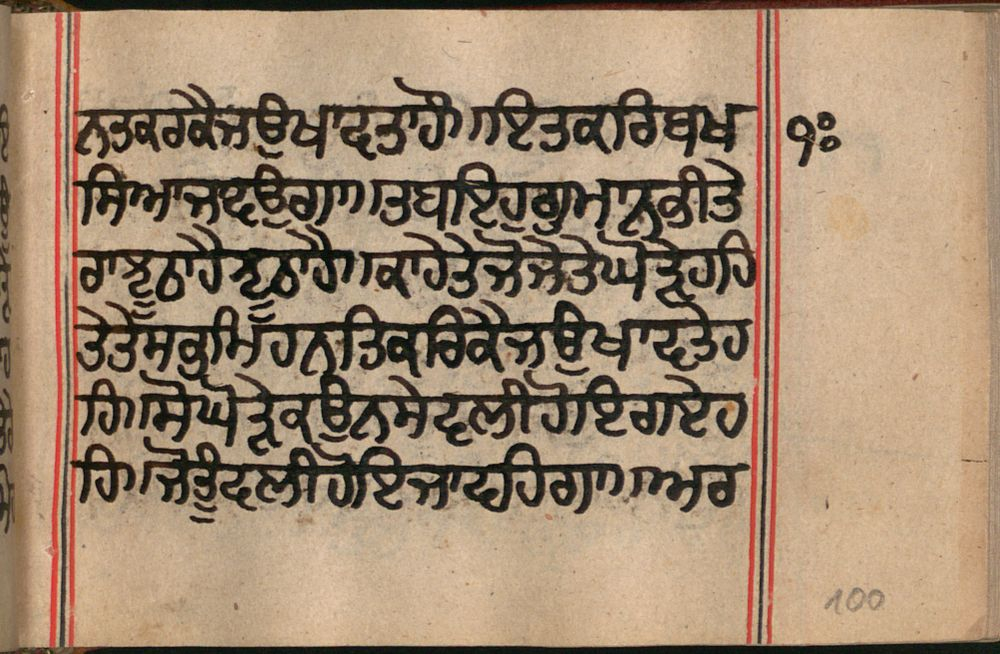 ਨਤਕਰਕੈਜਉਖਾਦਤਾਹੈ॥ਇਤਕਰਿਬਖ
ਸਿਆਜਾਵਉਗਾ॥ਤਬਇਹੁਗੁਮਾਨੁਕੀਤੇ
ਰਾਝੂਠਾਹੈਝੂਠਾਹੈ॥ਕਾਹੇਤੇਜੋਜੈਤੇਘੋੜੇਹਹਿ
ਤੇਤੇਸਕੁਮਿਹਨਤਿਕਰਿਕੈਜਉਖਾਦਤੇਹ
ਹਿ॥ਸੋਘੋੜੇਕਉਨਮੇਵਲੀਹੋਇਗਏਹ
ਹਿ॥ਜੋਤੂੰਵਲੀਹੋਇਜਾਵਹਿਗਾ॥ਅਰ
੧੦੦
100